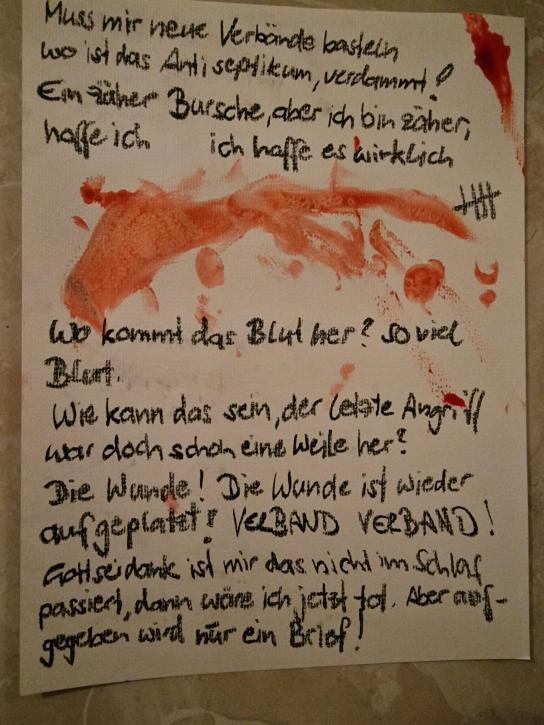 Muss mir neue Verbände basteln
wo ist das Antiseptikum, verdammt!
Ein zäher Bursche, aber ich bin zäher,
hoffe ich ich hoffe es wirklich
Wo kommt das Blut her? So viel
Blut.
Wie kann das sein, der letzte Angriff
war doch schon eine Weile her?
Die Wunde! Die Wunde ist wieder
aufgeplatzt! VERBAND VERBAND!
Gottseidank ist mir das nicht im Schlaf
passiert, dann wäre ich jetzt tot. Aber auf-
gegeben wird nur ein Brief!